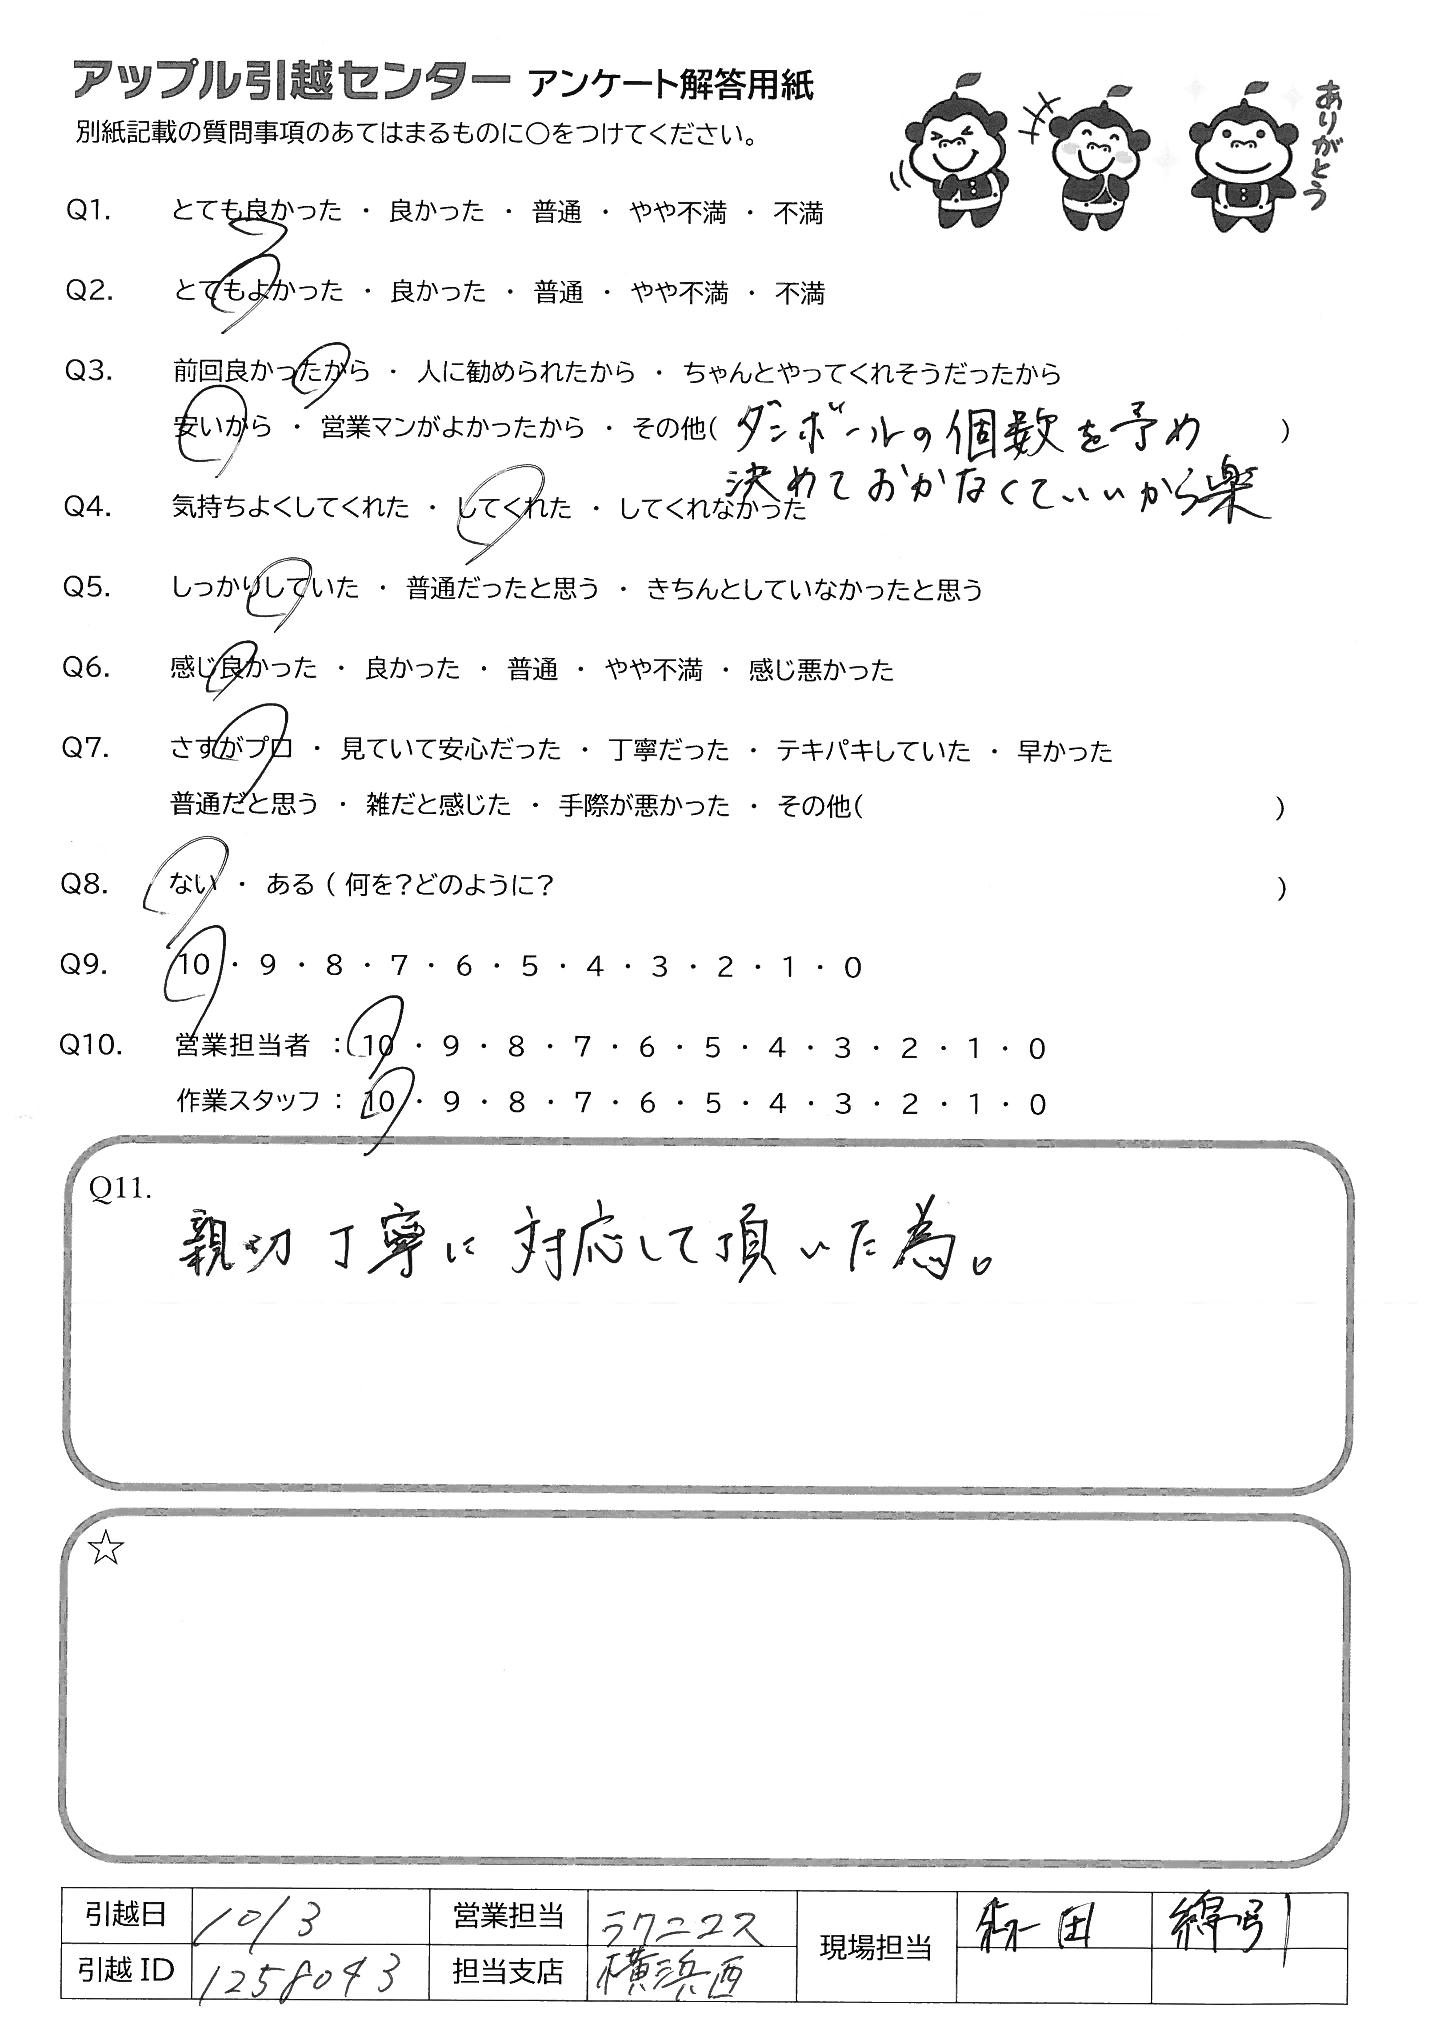 アップル引越センター アンケート解答用紙
別紙記載の質問事項のあてはまるものに○をつけてください。
ありがとう
Q1. とても良かった ・ 良かった ・ 普通 ・ やや不満 ・ 不満
Q2. とてもよかった ・ 良かった ・ 普通 ・ やや不満 ・ 不満
Q3. 前回良かったから ・ 人に勧められたから ・ ちゃんとやってくれそうだったから
安いから ・ 営業マンがよかったから ・ その他( ダンボールの個数を予め )
決めておかなくていいから楽
Q4. 気持ちよくしてくれた ・ してくれた ・ してくれなかった
Q5. しっかりしていた ・ 普通だったと思う ・ きちんとしていなかったと思う
Q6. 感じ良かった ・ 良かった ・ 普通 ・ やや不満 ・ 感じ悪かった
Q7. さすがプロ ・ 見ていて安心だった ・ 丁寧だった ・ テキパキしていた ・ 早かった
普通だと思う ・ 雑だと感じた ・ 手際が悪かった ・ その他( )
Q8. ない ・ ある ( 何を?どのように? )
Q9. 10 ・ 9 ・ 8 ・ 7 ・ 6 ・ 5 ・ 4 ・ 3 ・ 2 ・ 1 ・ 0
Q10. 営業担当者 : 10 ・ 9 ・ 8 ・ 7 ・ 6 ・ 5 ・ 4 ・ 3 ・ 2 ・ 1 ・ 0
作業スタッフ : 10 ・ 9 ・ 8 ・ 7 ・ 6 ・ 5 ・ 4 ・ 3 ・ 2 ・ 1 ・ 0
Q11.
親切丁寧に対応して頂いた為。
☆
引越日 10/3 営業担当 ラクニコス 現場担当 森田 綿引
引越ID 1258043 担当支店 横浜西